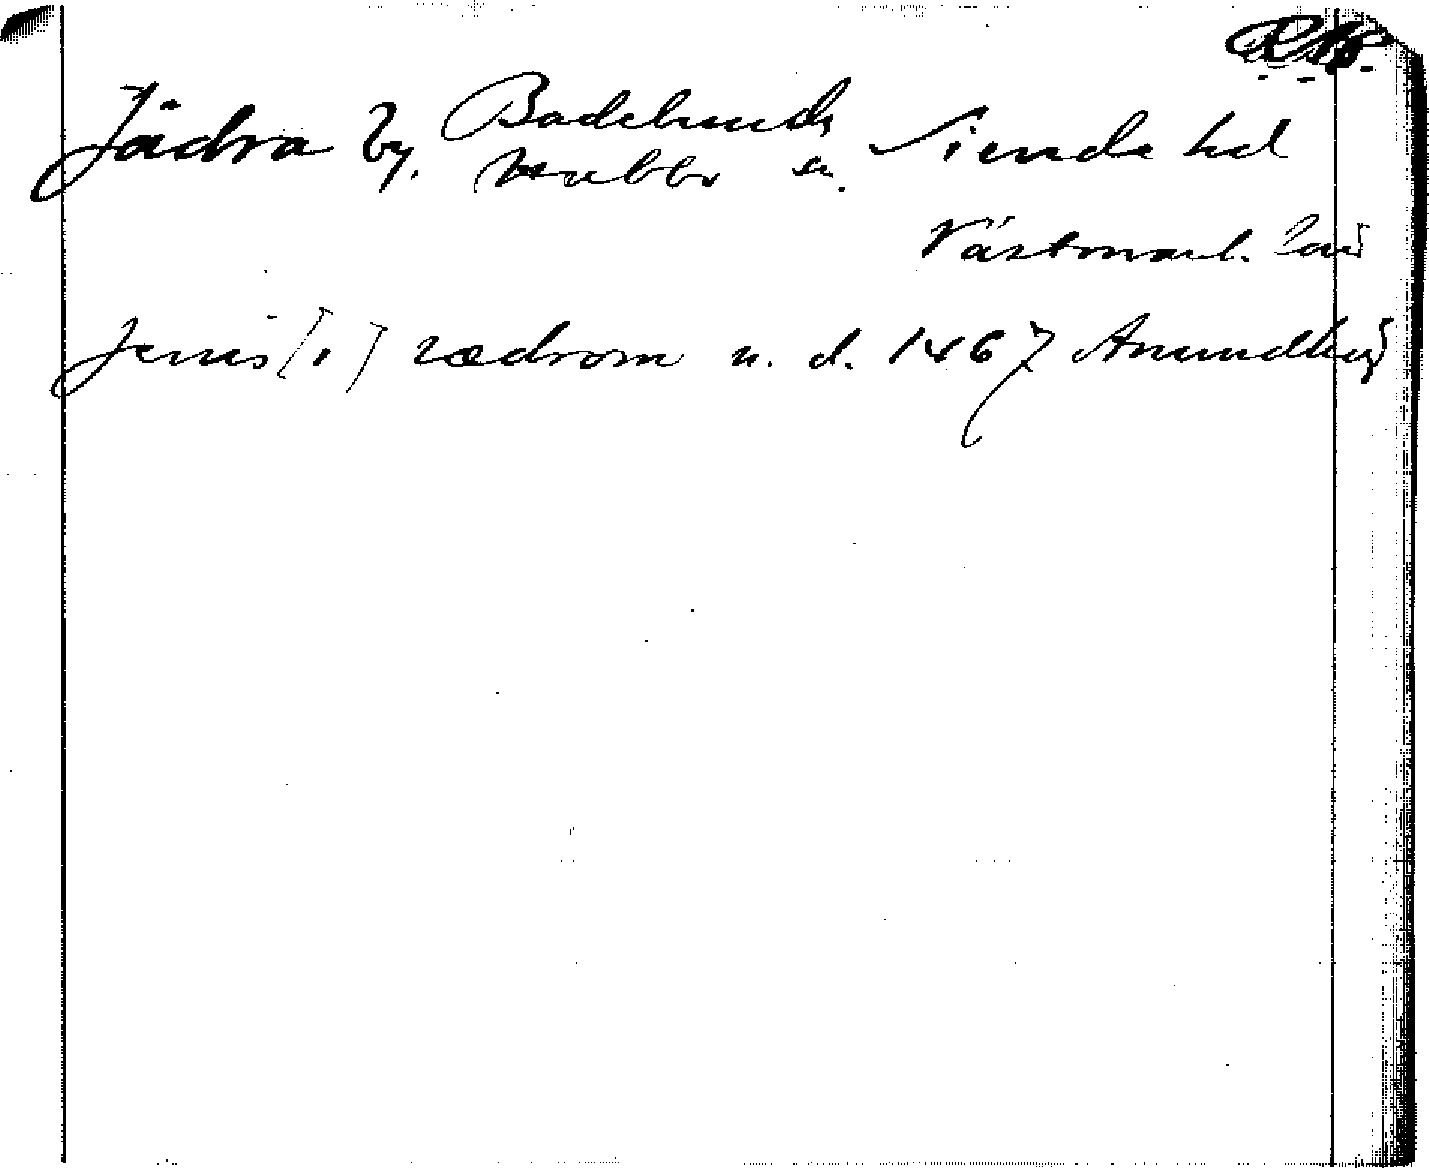 Jädra by, Badelunda
Hubbo sn. Siende hd
Västmanl. län
Jenis [i] rædrom u. d. 1467